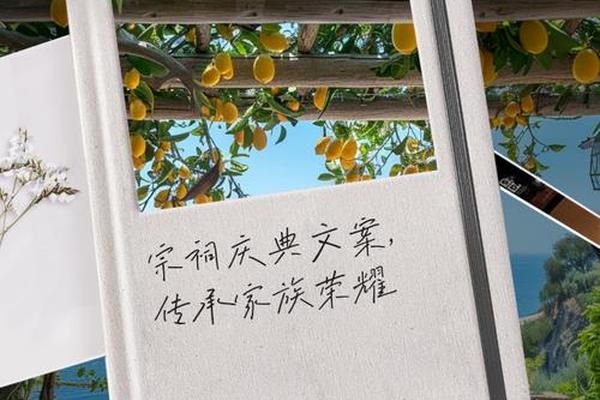 宗祠庆典文案,
传承家族荣耀